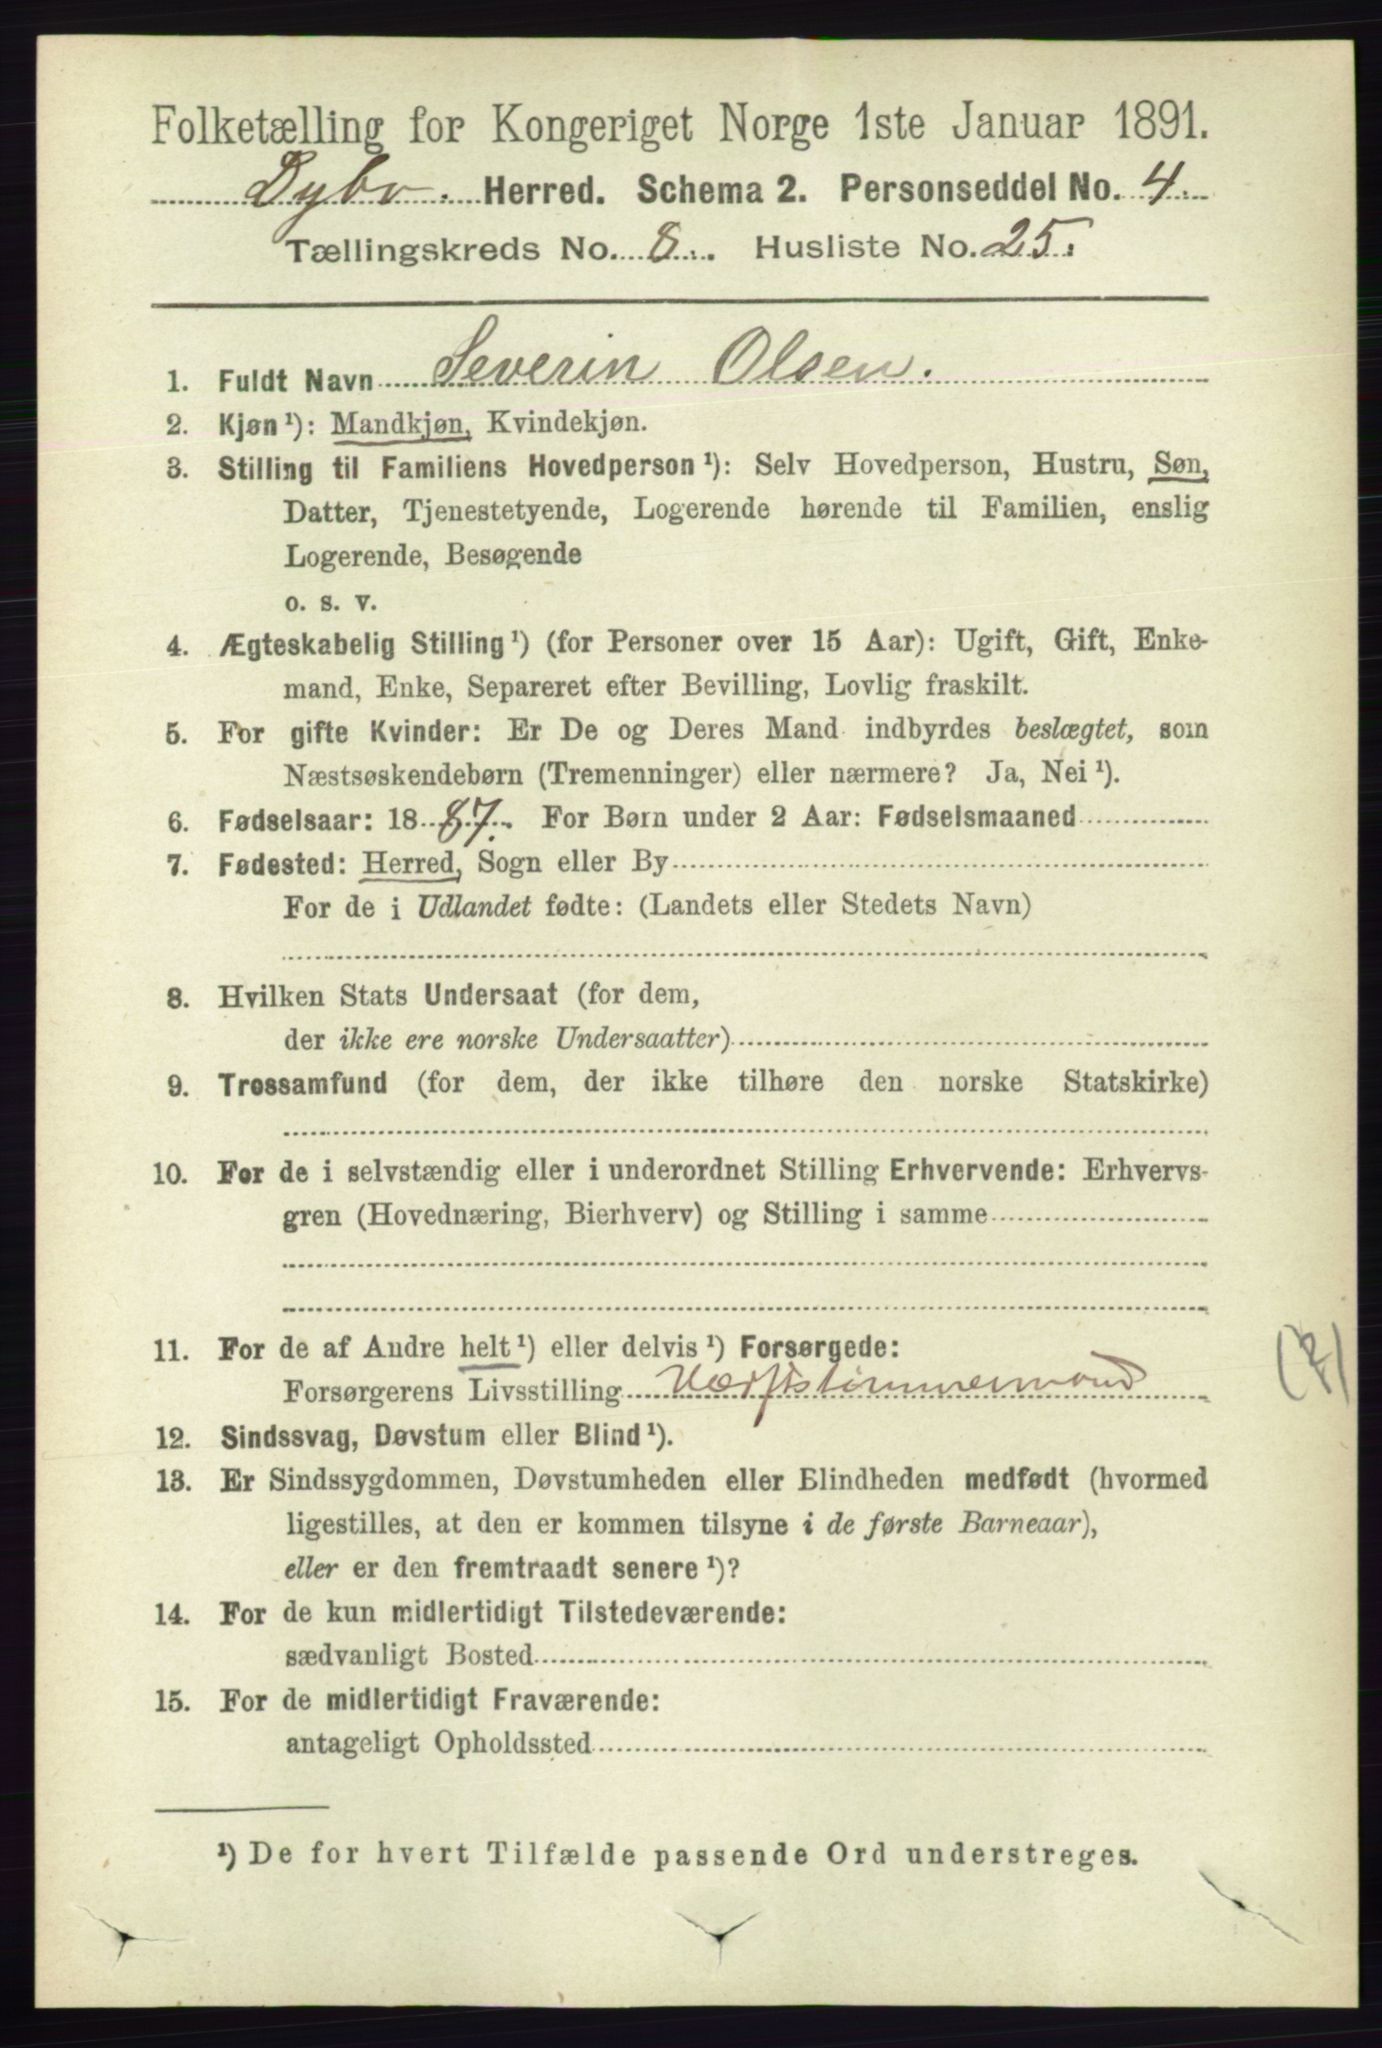 Folketælling for Kongeriget Norge 1ste Januar 1891.
Dybv. Herred. Schema 2. Personseddel No. 4.
Tællingskreds No. 8. Husliste No. 25.
1. Fuldt Navn Severin Olsen.
2. Kjøn¹): Mandkjøn, Kvindekjøn.
3. Stilling til Familiens Hovedperson¹): Selv Hovedperson, Hustru, Søn,
Datter, Tjenestetyende, Logerende hørende til Familien, enslig
Logerende, Besøgende
o. s. v.
4. Ægteskabelig Stilling¹) (for Personer over 15 Aar): Ugift, Gift, Enke-
mand, Enke, Separeret efter Bevilling, Lovlig fraskilt.
5. For gifte Kvinder: Er De og Deres Mand indbyrdes beslægtet, som
Næstsøskendebørn (Tremenninger) eller nærmere? Ja, Nei¹).
6. Fødselsaar: 1887. For Børn under 2 Aar: Fødselsmaaned
7. Fødested: Herred, Sogn eller By
For de i Udlandet fødte: (Landets eller Stedets Navn)
8. Hvilken Stats Undersaat (for dem,
der ikke ere norske Undersaatter)
9. Trossamfund (for dem, der ikke tilhøre den norske Statskirke)
10. For de i selvstændig eller i underordnet Stilling Erhvervende: Erhvervs-
gren (Hovednæring, Bierhverv) og Stilling i samme
11. For de af Andre helt¹) eller delvis¹) Forsørgede:
Forsørgerens Livsstilling Værftstømmermand
12. Sindssvag, Døvstum eller Blind¹).
13. Er Sindssygdommen, Døvstumheden eller Blindheden medfødt (hvormed
ligestilles, at den er kommen tilsyne i de første Barneaar),
eller er den fremtraadt senere¹)?
14. For de kun midlertidigt Tilstedeværende:
sædvanligt Bosted
15. For de midlertidigt Fraværende:
antageligt Opholdssted
¹) De for hvert Tilfælde passende Ord understreges.